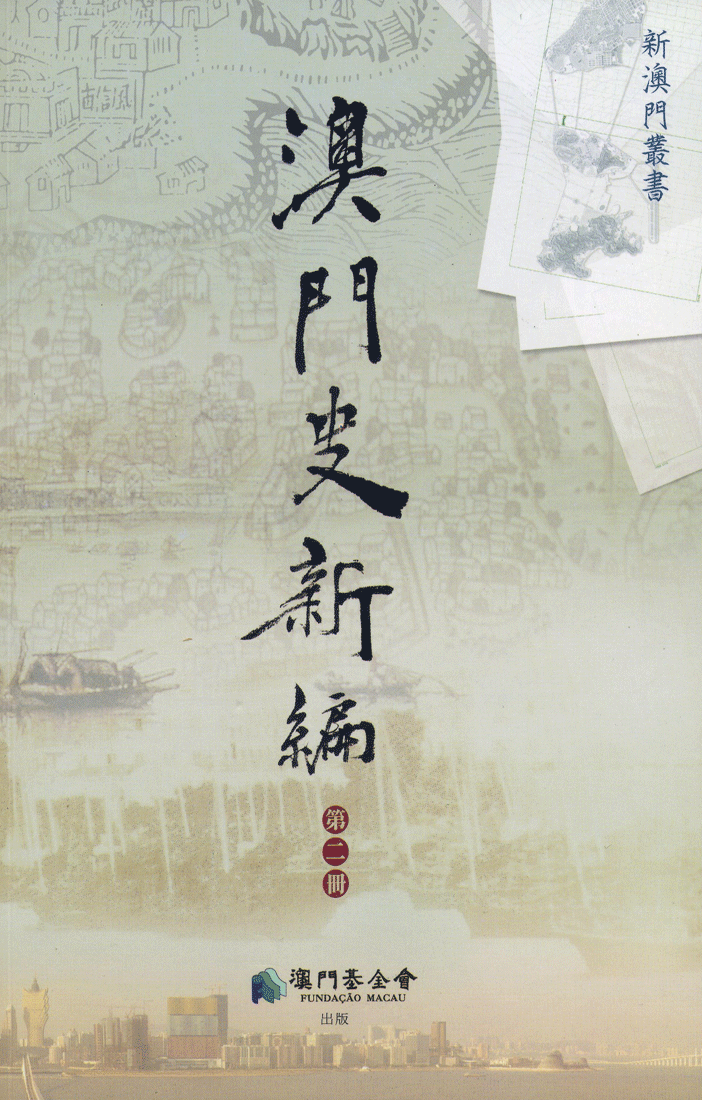 新澳門叢書
澳門史新編
第二冊
澳門基金會
FUNDAÇÃO MACAU
出版